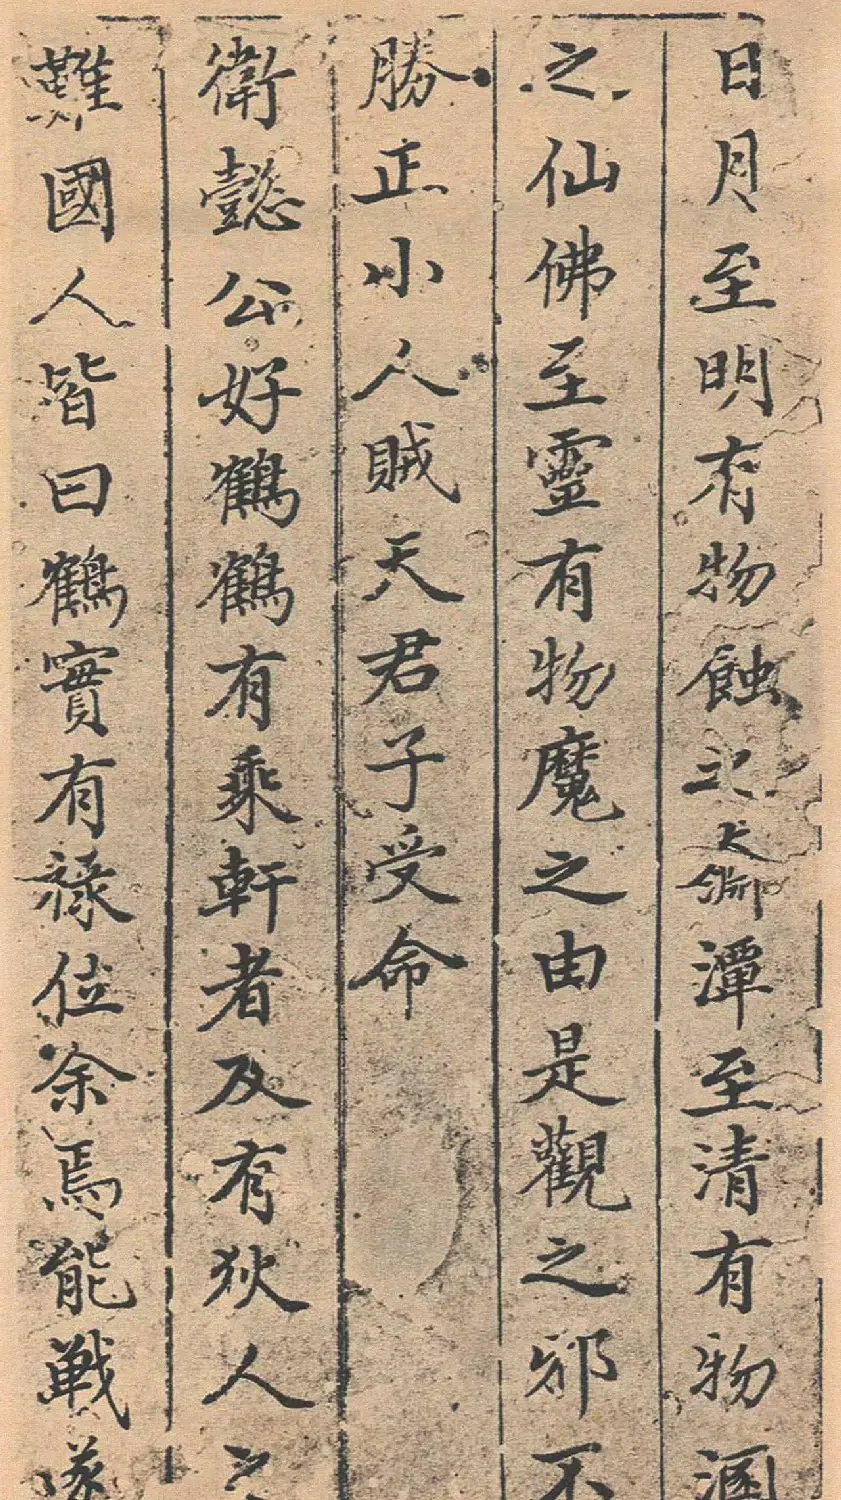 日月至明有物蝕之天淵潭至清有物溷
之仙佛至靈有物魔之由是觀之邪不
勝正小人賊天君子受命
衛懿公好鶴鶴有乘軒者及有狄人之
難國人皆曰鶴實有祿位余焉能戰遂